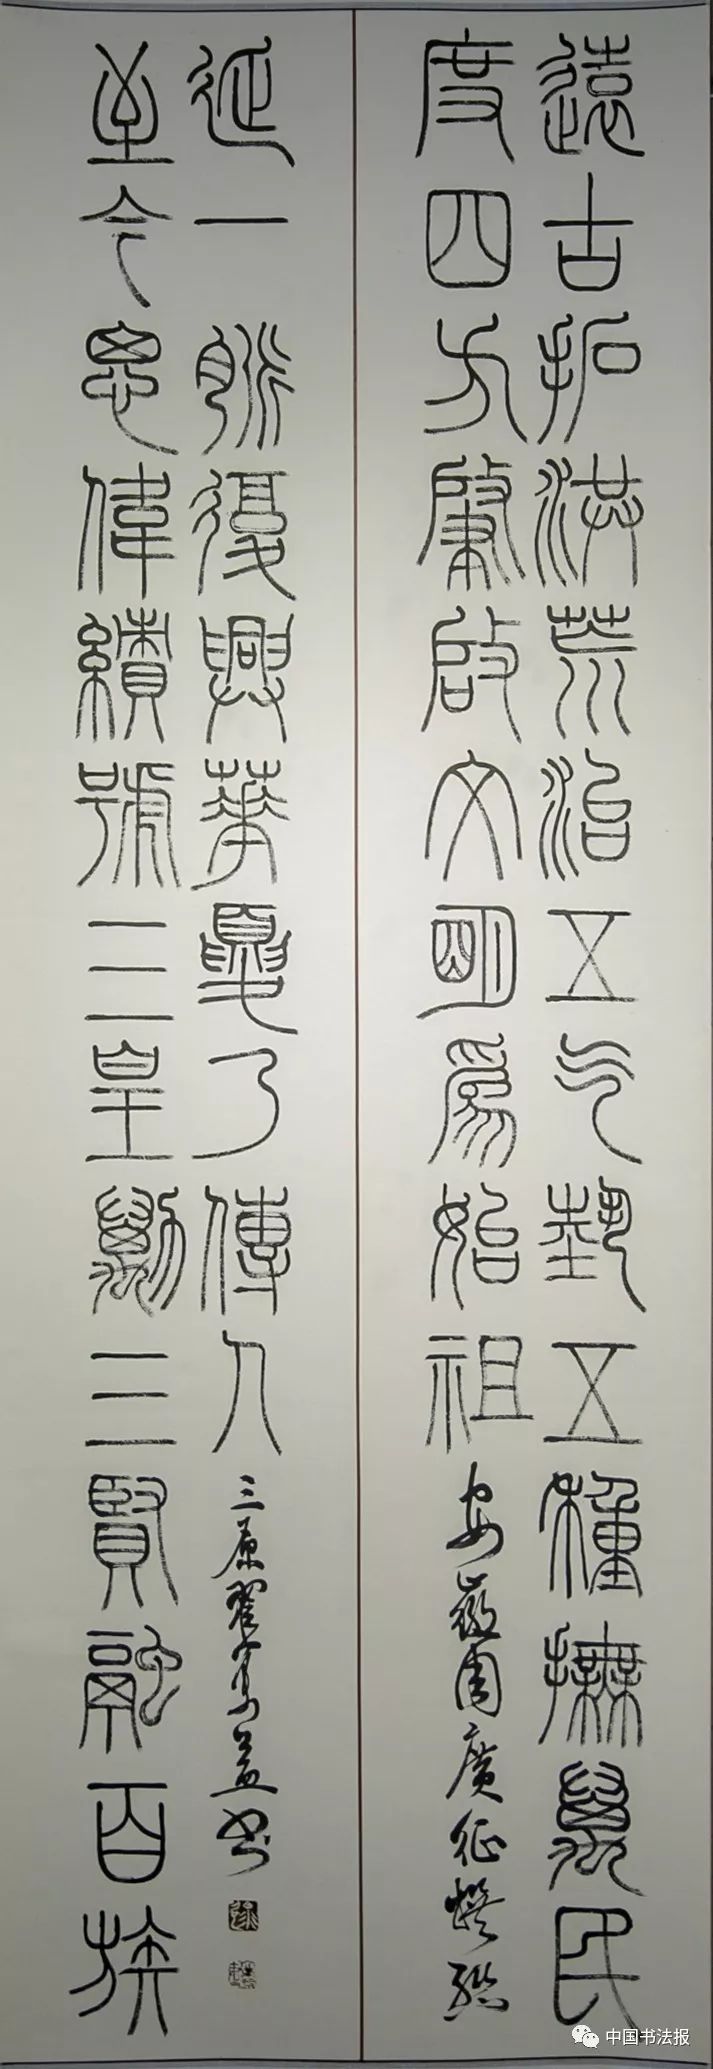 遠古拓洪荒治五气埶五種撫萬民
度四方肇啟文明爲始祖
安徽周廣征撰聯
至今思偉績號三皇勱三賢融百族
延一脈復興華夏乃傳人
三原翟益书
中国书法报